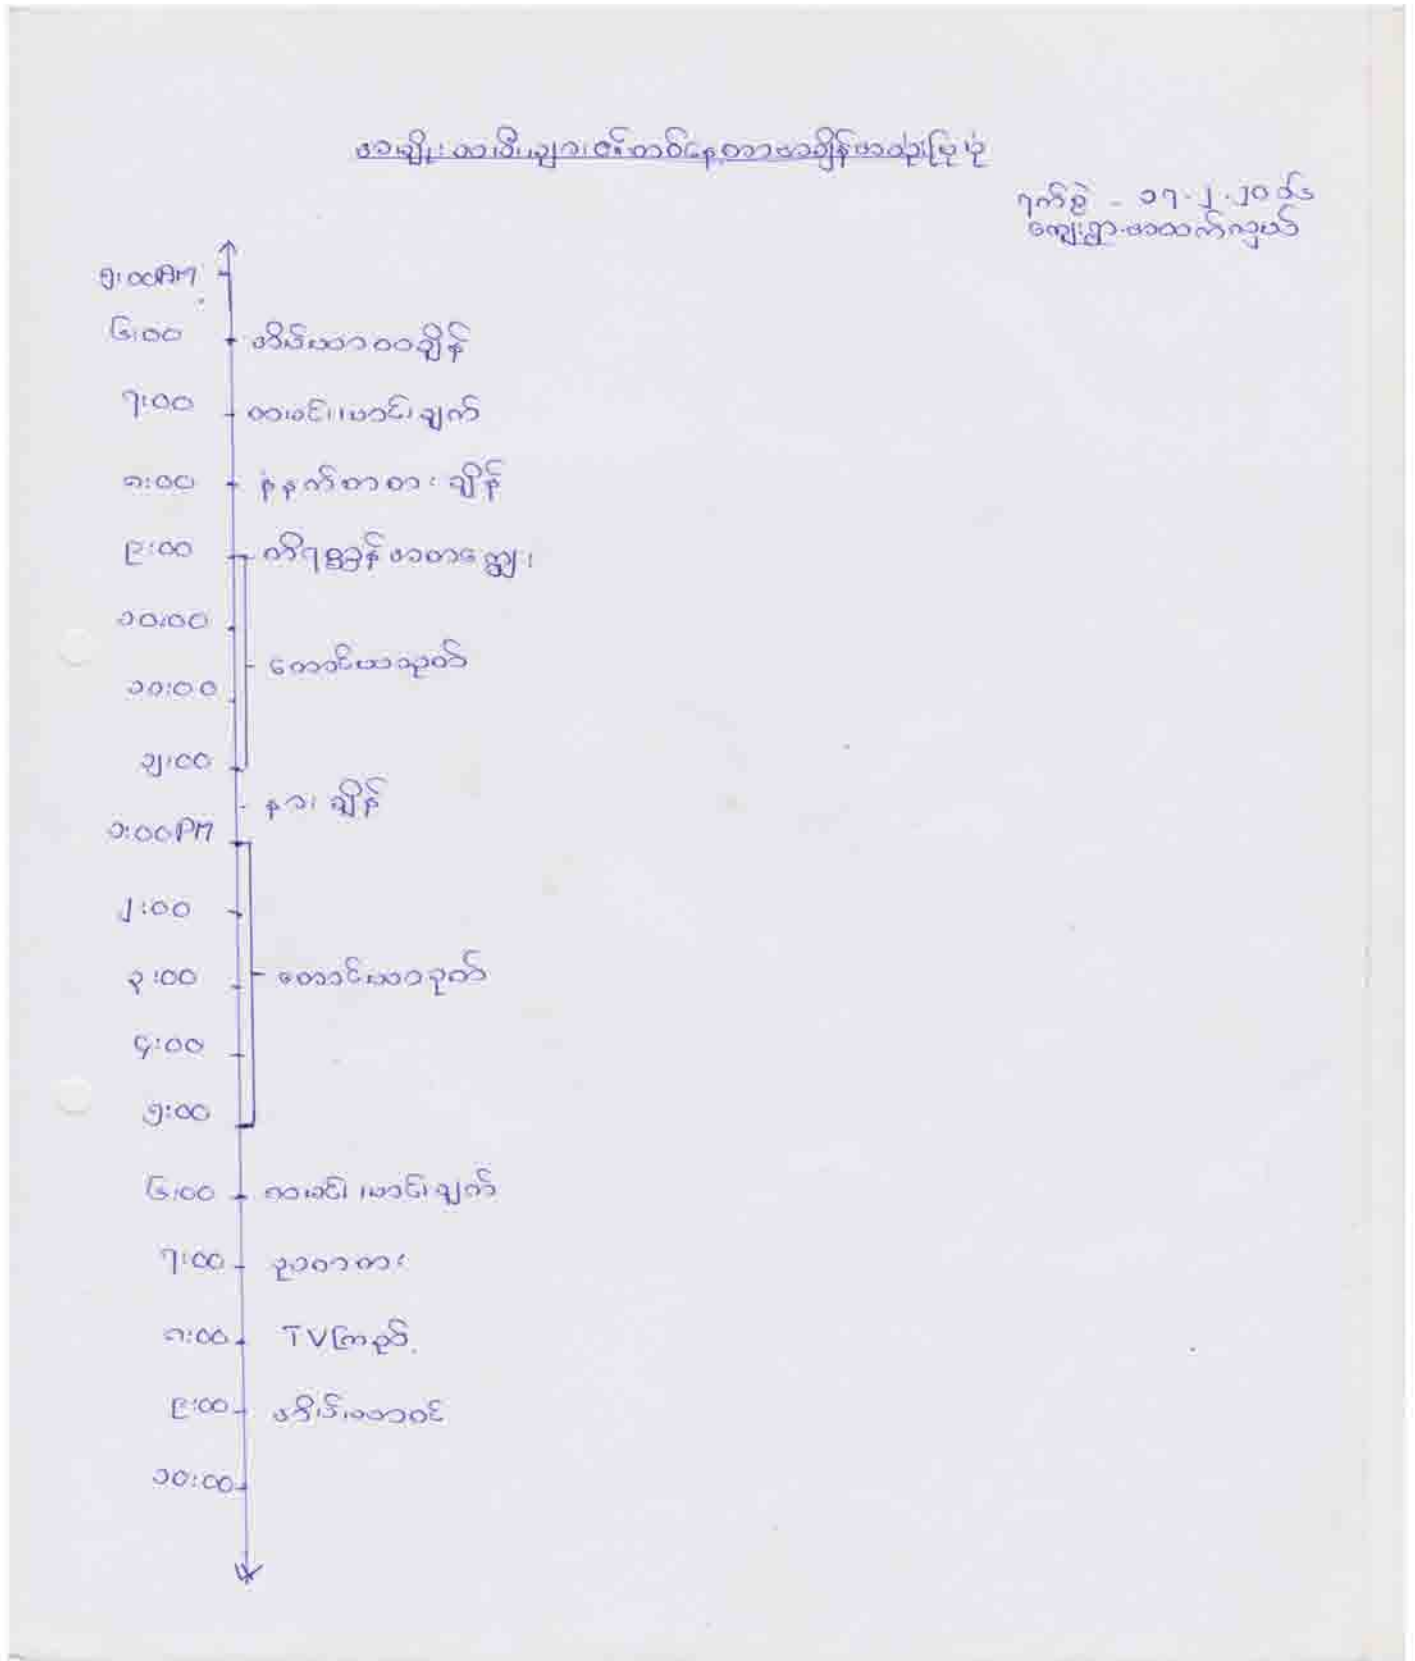 အမျိုးသမီးများ၏တစ်နေ့တာအချိန်အသုံးပြုပုံ
ရက်စွဲ - ၁၇.၂.၂၀၁၆
ကျေးရွာ-အထက်လှယ်
၅:၀၀AM
၆:၀၀ အိပ်ယာထချိန်
၇:၀၀ ထမင်းဟင်းချက်
၈:၀၀ နံနက်စာစားချိန်
၉:၀၀ တိရစ္ဆာန်အစာကျွေး
၁၀:၀၀
တောင်ယာလုပ်
၁၁:၀၀
၁၂:၀၀
နားချိန်
၁:၀၀PM
၂:၀၀
၃:၀၀ တောင်ယာလုပ်
၄:၀၀
၅:၀၀
၆:၀၀ ထမင်းဟင်းချက်
၇:၀၀ ညစာစား
၈:၀၀ TVကြည့်
၉:၀၀ အိပ်ယာဝင်
၁၀:၀၀